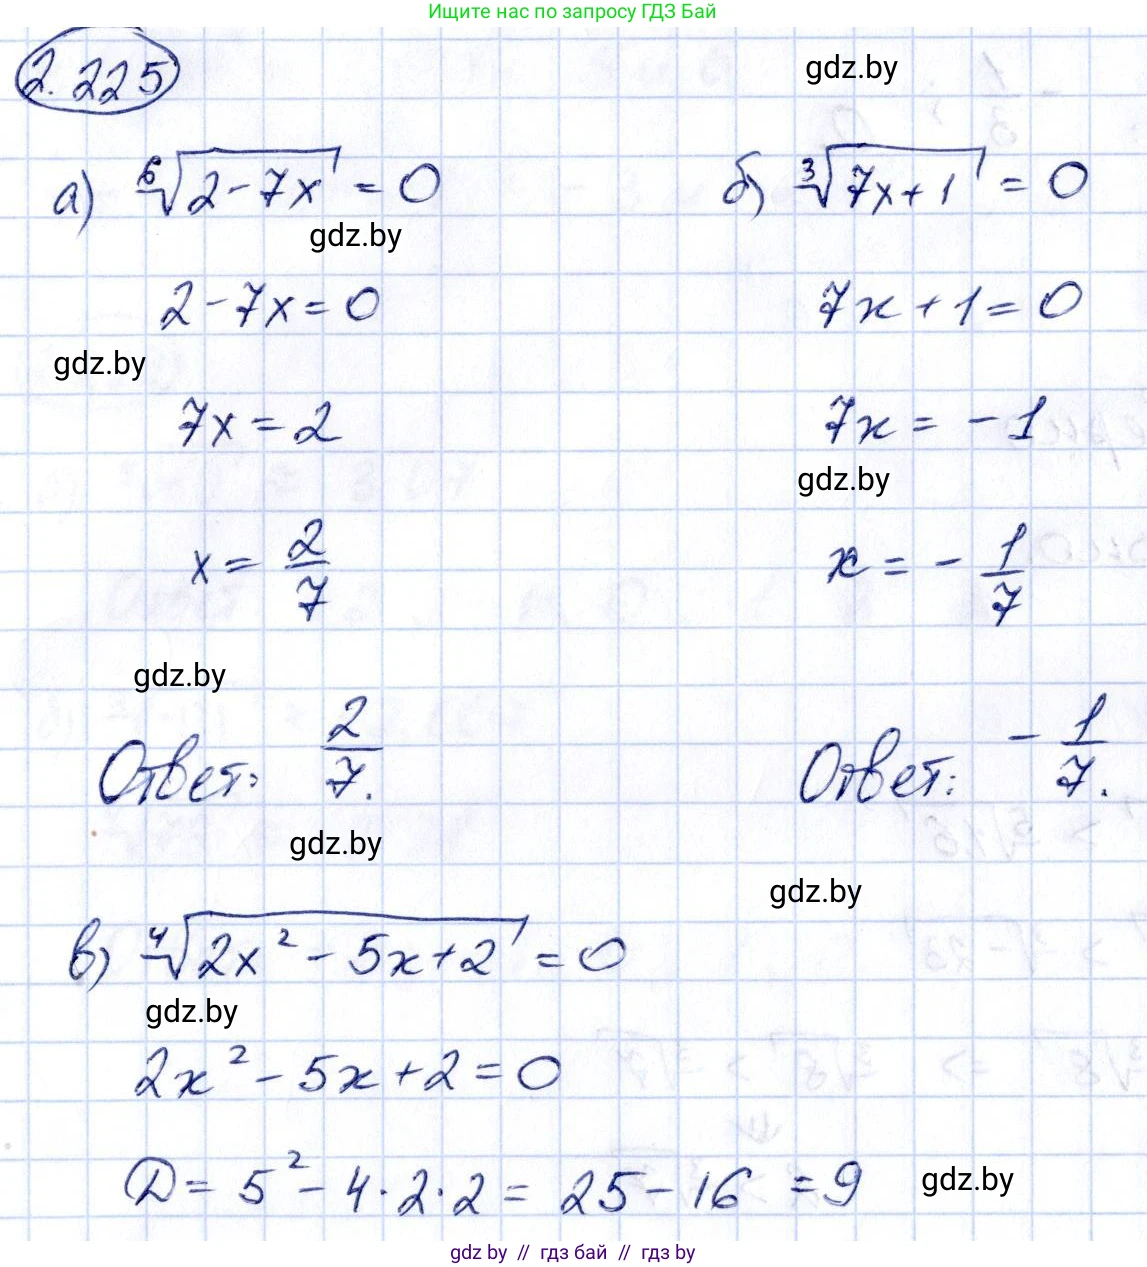 Ищите нас по запросу ГДЗ Бай
2.225
gdz.by
а) ⁶√(2-7x) = 0
б) ³√(7x+1) = 0
gdz.by
2-7x=0
7x+1=0
gdz.by
7x=2
7x=-1
gdz.by
x=2/7
x=-1/7
gdz.by
Ответ: 2/7.
Ответ: -1/7.
gdz.by
gdz.by
в) ⁴√(2x²-5x+2) = 0
gdz.by
2x²-5x+2=0
D=5²-4·2·2=25-16=9
gdz.by
gdz by // гдз бай // гдз by